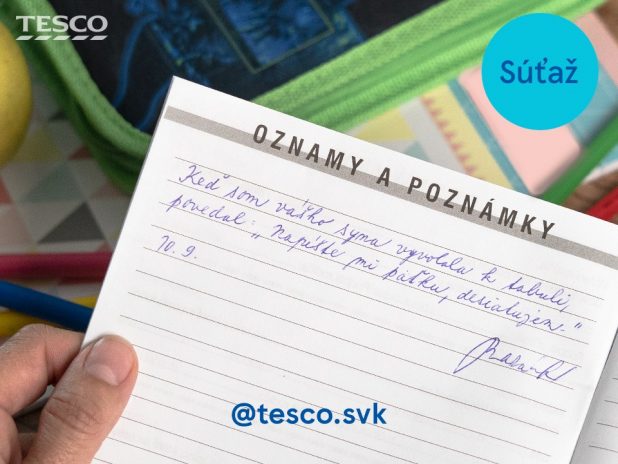 TESCO
Súťaž
OZNAMY A POZNÁMKY
Keď som vášho syna vyvolala k tabuli,
povedal: „Napíšte mi päťku, desiatujem.“
10.9.
@tesco.svk